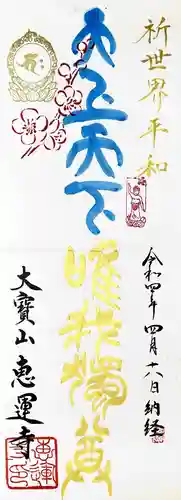 祈世界平和
天上天下
唯我獨尊
令和四年四月十八日納経
大寶山恵運寺